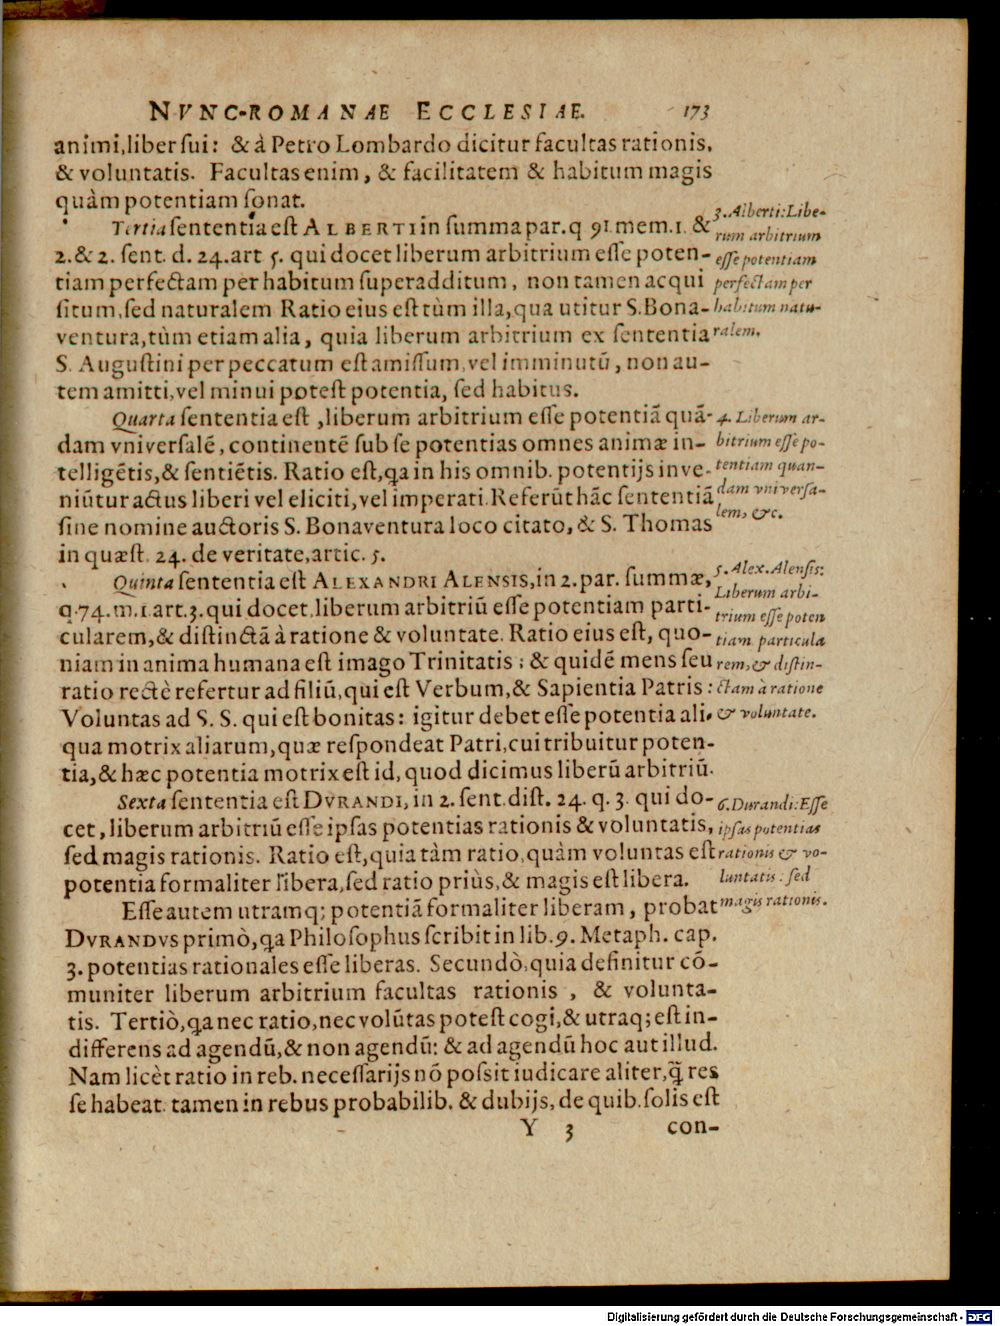 NVNC-ROMANAE ECCLESIAE. 173
animi, liber sui: & à Petro Lombardo dicitur facultas rationis,
& voluntatis. Facultas enim, & facilitatem & habitum magis
quàm potentiam sonat.
Tertia sententia est ALBERTI in summa par. q 91. mem. 1. &
2. & 2. sent. d. 24. art 5. qui docet liberum arbitrium esse poten-
tiam perfectam per habitum superadditum, non tamen acqui
situm, sed naturalem Ratio eius est tùm illa, qua utitur S. Bona-
ventura, tùm etiam alia, quia liberum arbitrium ex sententia
S. Augustini per peccatum est amissum, vel imminutū, non au-
tem amitti, vel minui potest potentia, sed habitus.
3. Alberti: Libe-
rum arbitrium
esse potentiam
perfectam per
habitum natu-
ralem.
Quarta sententia est, liberum arbitrium esse potentiā quā-
dam vniversalē, continentē sub se potentias omnes animæ in-
telligētis, & sentiētis. Ratio est, qa in his omnib. potentijs inve-
niūtur actus liberi vel eliciti, vel imperati. Referūt hāc sententiā
sine nomine auctoris S. Bonaventura loco citato, & S. Thomas
in quæst. 24. de veritate, artic. 5.
4. Liberum ar-
bitrium esse po-
tentiam quan-
dam vniversa-
lem, &c.
Quinta sententia est ALEXANDRI ALENSIS, in 2. par. summæ,
q. 74. m. 1. art. 3. qui docet, liberum arbitriū esse potentiam parti-
cularem, & distinctā à ratione & voluntate. Ratio eius est, quo-
niam in anima humana est imago Trinitatis; & quidē mens seu
ratio rectè refertur ad filiū, qui est Verbum, & Sapientia Patris:
Voluntas ad S. S. qui est bonitas: igitur debet esse potentia ali-
qua motrix aliarum, quæ respondeat Patri, cui tribuitur poten-
tia, & hæc potentia motrix est id, quod dicimus liberū arbitriū.
5. Alex. Alensis:
Liberum arbi-
trium esse poten
tiam particula
rem, & distin-
ctam à ratione
& voluntate.
Sexta sententia est DVRANDI, in 2. sent. dist. 24. q. 3. qui do-
cet, liberum arbitriū esse ipsas potentias rationis & voluntatis,
sed magis rationis. Ratio est, quia tàm ratio, quàm voluntas est
potentia formaliter libera, sed ratio priùs, & magis est libera.
6. Durandi: Esse
ipsas potentias
rationis & vo-
luntatis: sed
magis rationis.
Esse autem utramq; potentiā formaliter liberam, probat
DVRANDVS primò, qa Philosophus scribit in lib. 9. Metaph. cap.
3. potentias rationales esse liberas. Secundò, quia definitur cō-
muniter liberum arbitrium facultas rationis, & volunta-
tis. Tertiò, qa nec ratio, nec volūtas potest cogi, & utraq; est in-
differens ad agendū, & non agendū: & ad agendū hoc aut illud.
Nam licèt ratio in reb. necessarijs nō possit iudicare aliter, q̃ res
se habeat. tamen in rebus probabilib. & dubijs, de quib. solis est
Y 3 con-
Digitalisierung gefördert durch die Deutsche Forschungsgemeinschaft - DFG